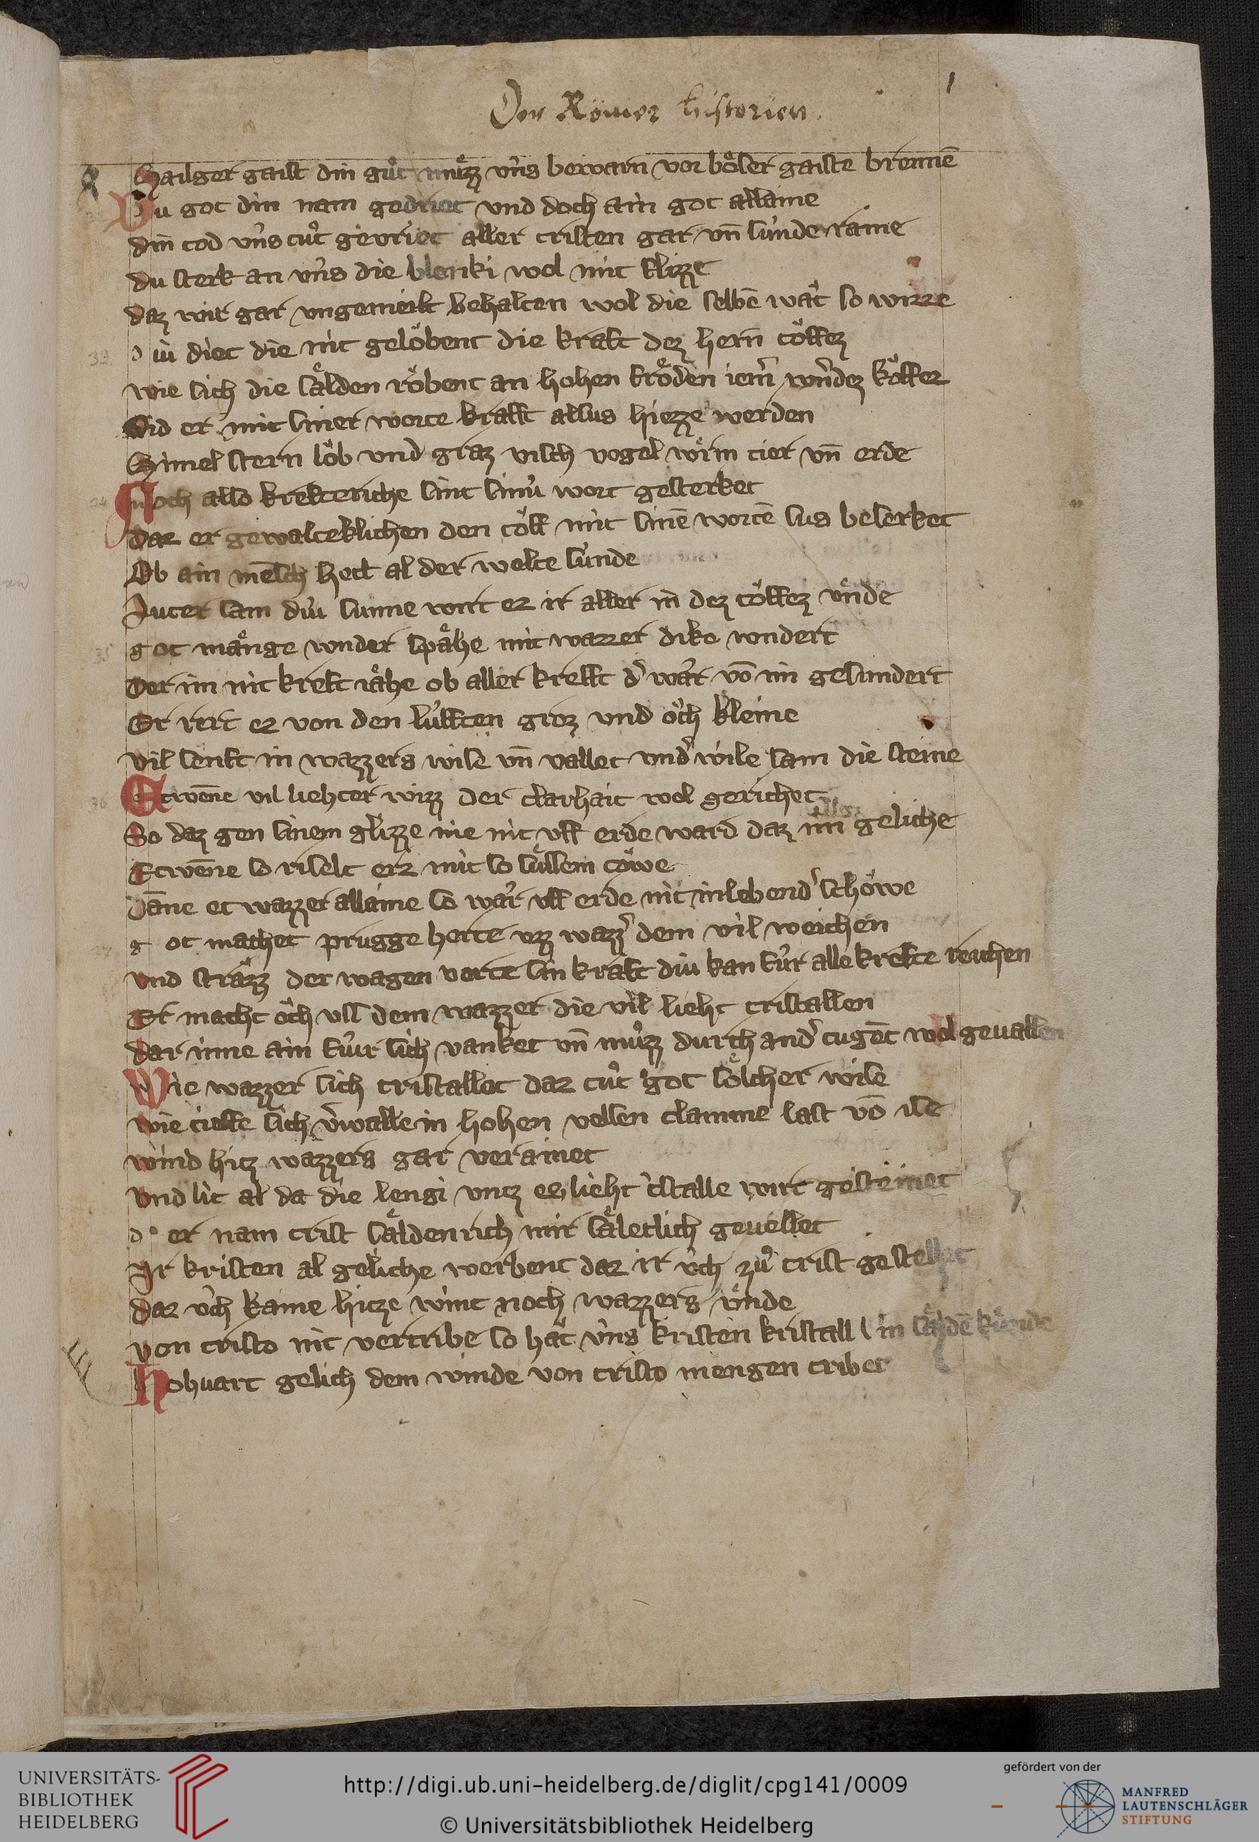 1
Der Römer historien.
Hailger gaist din gůt můzz vns bewarn vor böser gaiste brennē
Du got din nam gedriet vnd doch ain got allaine
din tod vns tůt gevriet aller cristen gar vn̄ sunder raine
du sterk an vns die blenki wol mit flizze
daz wir gar vngemeilt behalten wol die selbē wat so wizze
diu diet die nit gelöbent die kraft dez hern töffez
wie sich die sälden röbent an hohen fröden iem̄
Sid er mit siner worte krafft alsus hiezze werden
Himel stern löb vnd graz visch vogel wörm tier vn̄ erde
Noch also krefteriche sint sinu wort gesterket
daz er gewalteklichen den töff mit sinē wortē sus beserket
Ob ain mēsch hett al der welte sunde
luter sam diu sunne wirt ez ir aller in dez töffez vnde
got mänge wnder spähe mit wazzer dike wndert
Der im nit kreft iähe ob aller krefft d' wär vō im gesundert
Er rert ez von den lufften groz vnd öch kleine
vil senft in wazzers wise vn̄ vallet vnd' wile sam die steine
Etwēne vil liehter wizz der clarhait wol gerichet
So daz gen sinem glizze nie nit vff erde ward daz im geliche
Etwēne so riselt erz mit so süssem töwe
Däne et wazzer allaine so wär vff erde nit inlebend' schöwe
got machet prugge herte vzz wazz' dem vil weichen
vnd strāzz der wagen verte sin kraft diu kan für alle krefte reichen
Er macht öch vss dem wazzer die vil lieht cristallen
dar inne ain für sich vanket vn̄ můzz durch and' tugēt wol gevallen
Wie wazzer sich cristallet daz tůt got sölcher wise
wie tieffe sich v'walle in hohen vellen clamme last vō ise
wind hitz wazzers gar verainet
vnd lit al da die lengi vntz es lieht c'stalle wirt gesteinet
der nam crist säldenrich mir säleclich gevellet
Ir kristen al geliche werbent daz ir vch zů crist gestellet
daz vch kaine hitze wint noch wazzers vnde
von cristo nit vertribe so hät vns kristen kristall
Hohvart gelich dem winde von cristo mengen tribet
UNIVERSITÄTS-
BIBLIOTHEK
HEIDELBERG
http://digi.ub.uni-heidelberg.de/diglit/cpg141/0009
© Universitätsbibliothek Heidelberg
gefördert von der
MANFRED
LAUTENSCHLÄGER
STIFTUNG